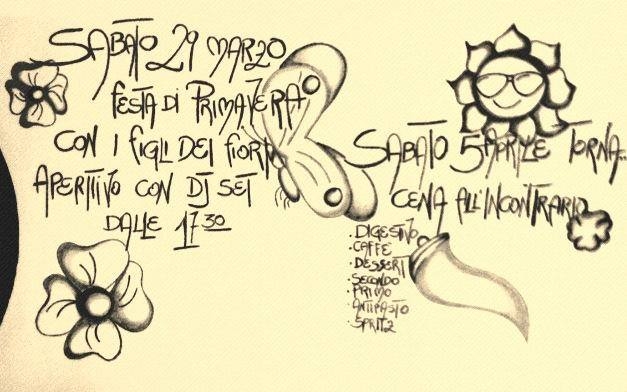 SABATO 29 MARZO
FESTA DI PRIMAVERA
CON I FIGLI DEI FIORI
APERITIVO CON DJ SET
DALLE 17 30
SABATO 5 APRILE TORNA..
CENA ALL'INCONTRARIO
· DIGESTIVO
· CAFFÈ
· DESSERT
· SECONDO
· PRIMO
· ANTIPASTO
· SPRITZ